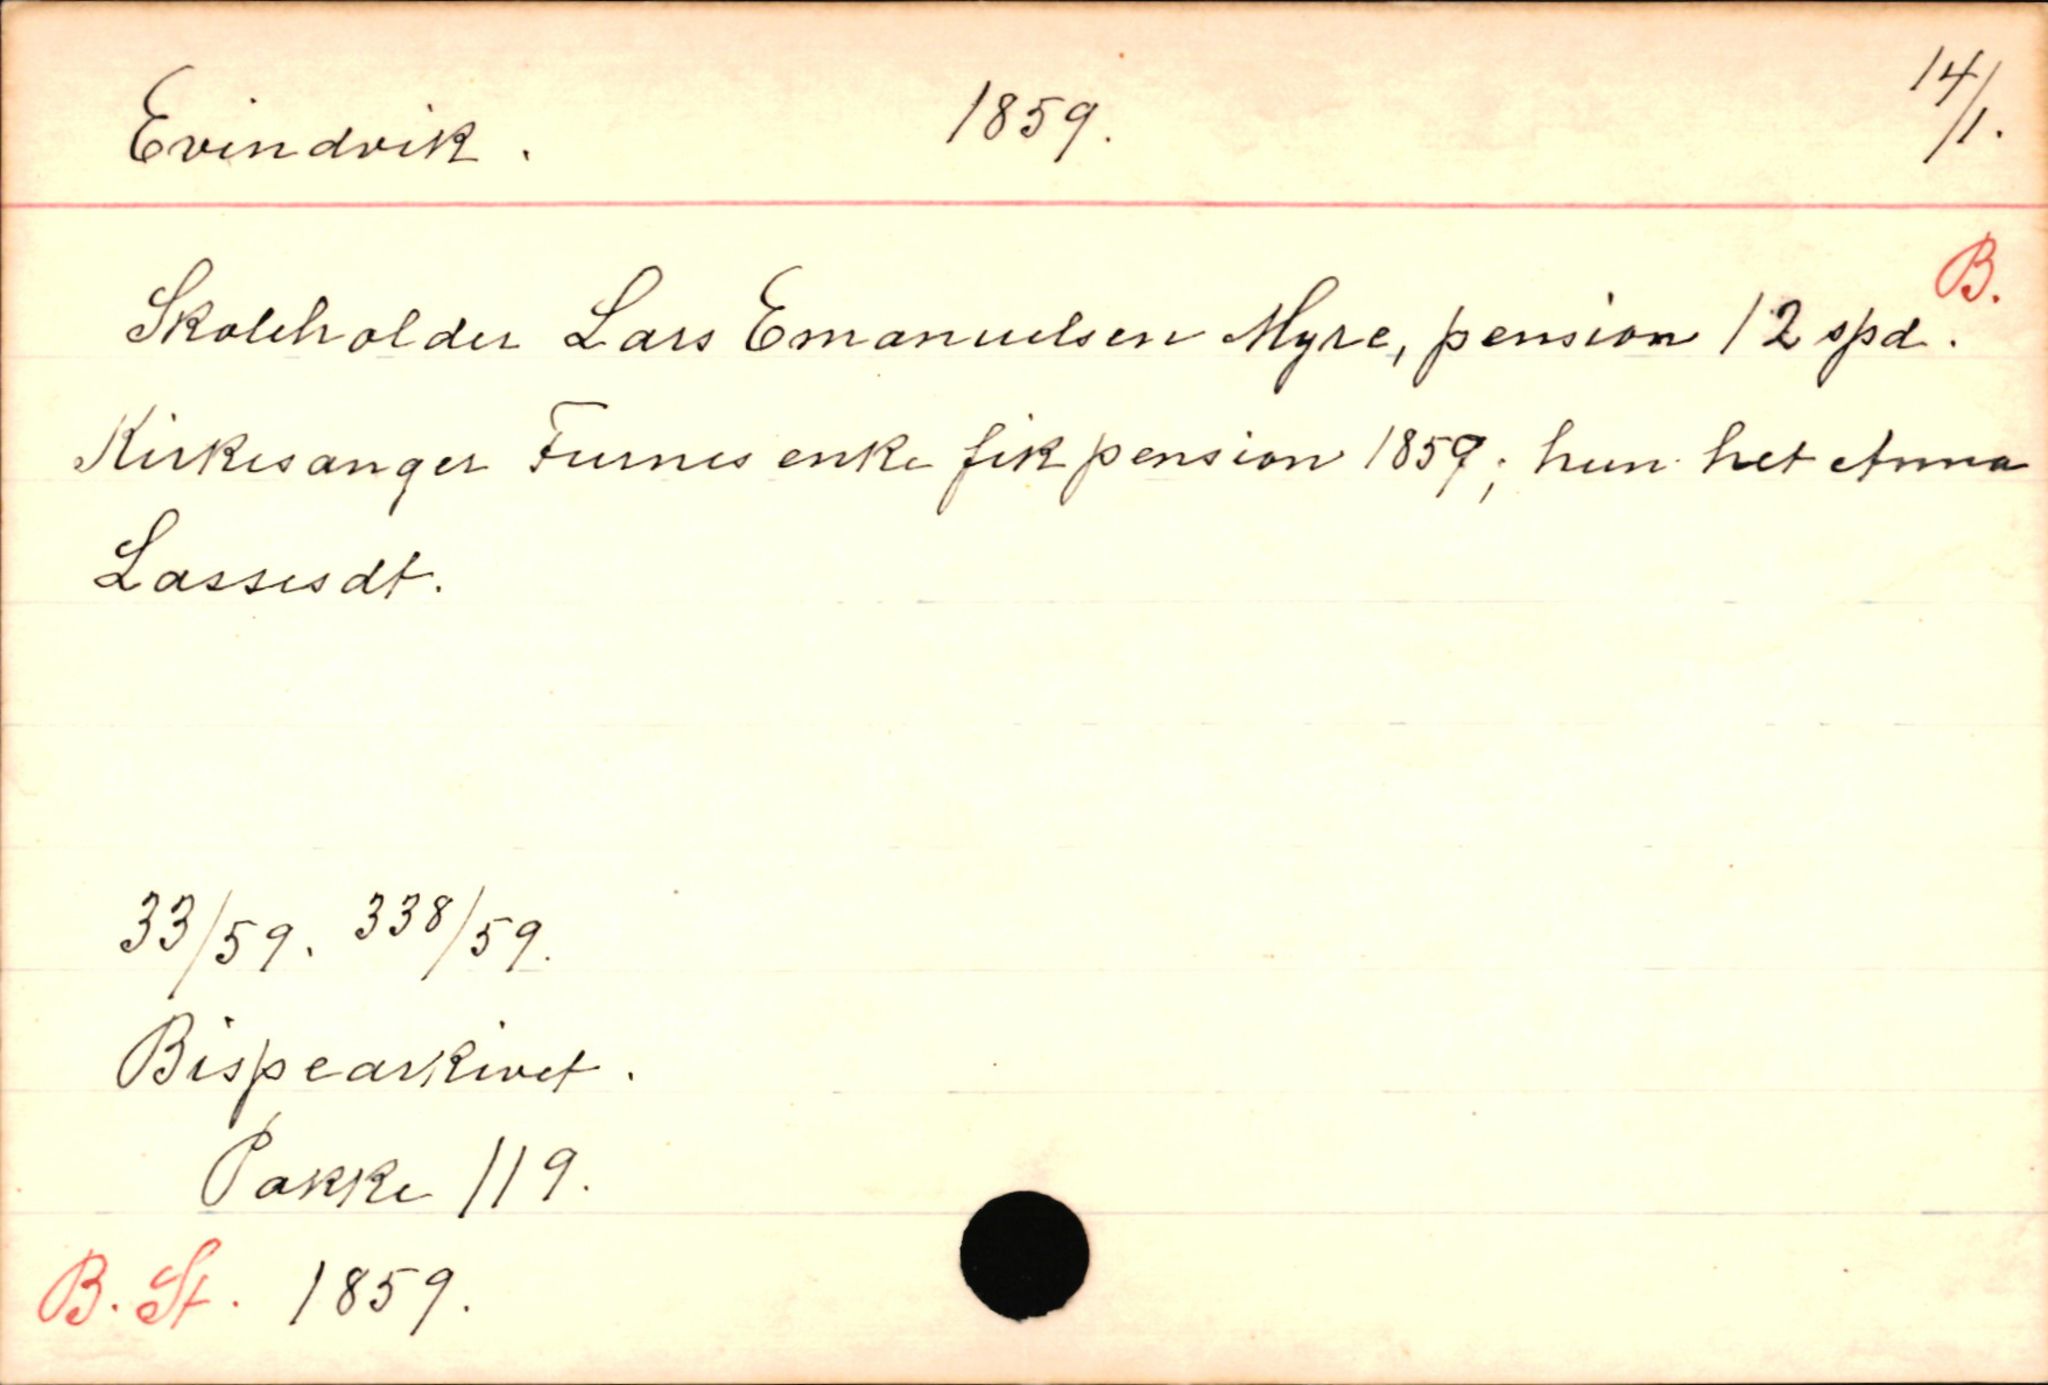 Evindvik. 1859. 14/1.
B.
Skoleholder Lars Emanuelsen Myre, pension 12 spd.
Kirkesanger Furnes enke fik pension 1859; hun het Anna
Lassesdt.
33/59. 338/59.
Bispearkivet.
Pakke 119.
B. St. 1859.